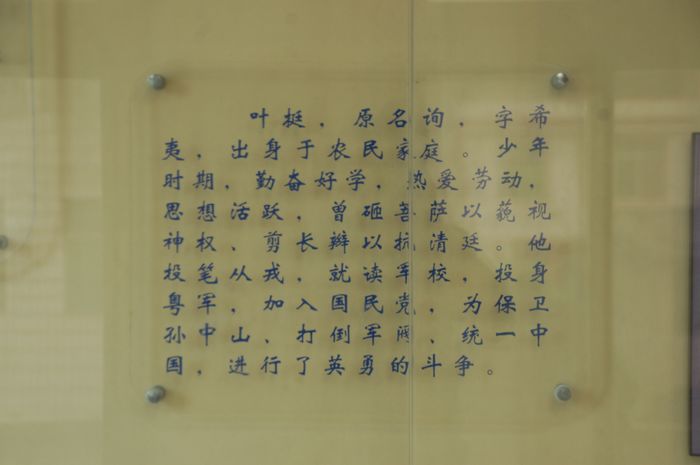 叶挺，原名询，字希
夷，出身于农民家庭。少年
时期，勤奋好学，热爱劳动，
思想活跃，曾砸菩萨以藐视
神权、剪长辫以抗清廷。他
投笔从戎，就读军校，投身
粤军，加入国民党，为保卫
孙中山、打倒军阀、统一中
国，进行了英勇的斗争。